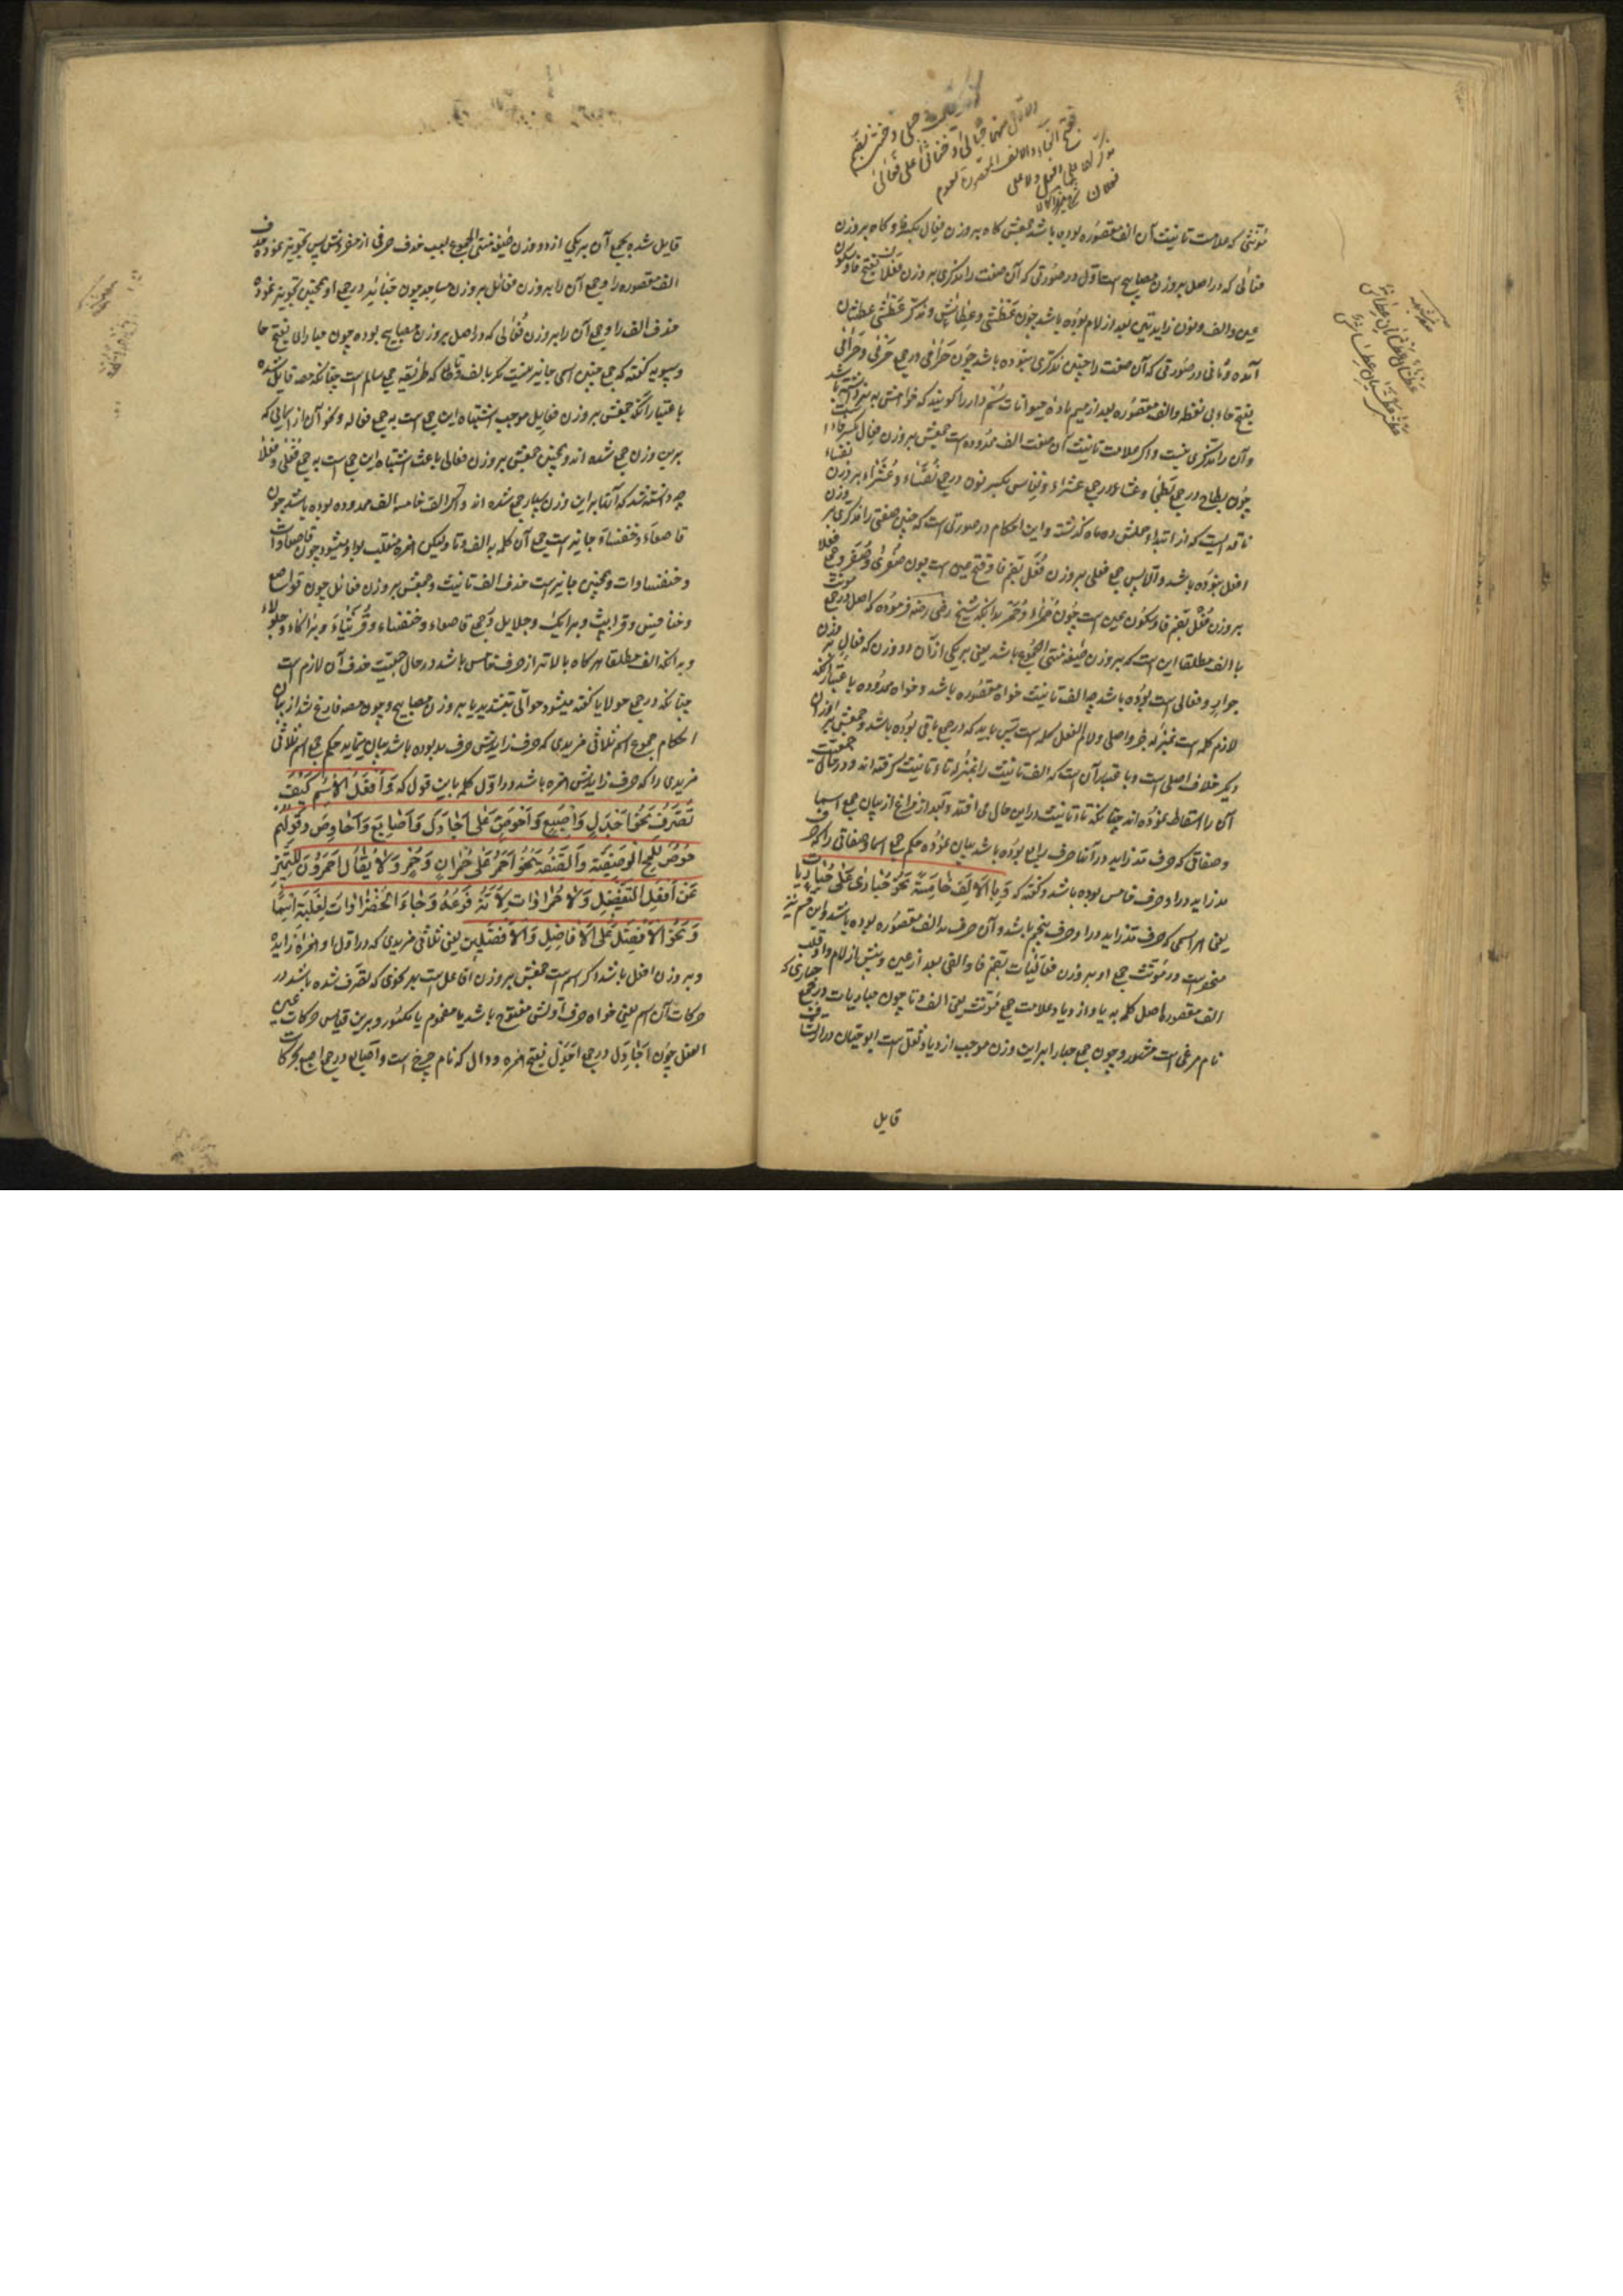 مؤنثی که علامت تانیث آن الف مقصوره بوده باشد جمعش کاه بر وزن فعال بکسر فا و کاه بر وزن
فعالی که در اصل بر وزن مصابیح است اول در صورتی که آن صفت را مذکری بر وزن فعلان بفتح فا و سکون
عین و الف و نون زایدتین بعد از لام بوده باشد چون عطشی و عطاش و مذکر عطشی عطشان
آمده و ثانی در صورتی که آن صفت را چنین مذکری نبوده باشد چون حرامی در جمع حرمی و حرامی
بفتح حاء بی نقطه و الف مقصوره بعد از میم ماده حیوانات سُم دار را کویند که خواهش به نر داشته باشد
و آن را مذکری نیست و اکر علامت تانیث آن صفت الف ممدوده است جمعش بر وزن فعال بکسر فا
چون بطاح در جمع بطحی و عشار در جمع عشراء و نفاس بکسر نون در جمع نفساء و عشراء بر وزن نفساء
ناقه ایست که از ابتداء حملش ده ماه کذشته و این احکام در صورتی است که چنین صفتی را مذکری بر وزن
افعل نبوده باشد و الا پس جمع فعلی بر وزن فعل بضم فا و فتح عین است چون صغری و صغر و جمع فعلا
بر وزن فعل بضم فا و سکون عین است چون حمراء و حمر بدانکه شیخ رضی رضه فرموده که اصل در جمع مؤنث
با الف مطلقا این است که بر وزن صیغه منتهی الجموع باشد یعنی بر یکی از آن دو وزن که فعال بر وزن
جوار و فعالی است بوده باشد چه الف تانیث خواه مقصوره باشد و خواه ممدوده باعتبار آنکه
لازم کلمه است بمنزله جزو اصلی و لام الفعل کلمه است پس باید که در جمع باقی بوده باشد و جمعش بر اوزان
دیکر خلاف اصلی است و باعتبار آن است که الف تانیث را بمنزله تاء تانیث کرفته اند و در حال جمعیت
آن را اسقاط نموده اند چنانکه تاء تانیث در این حال می افتد و بعد از فراغ از بیان جمع اسما
و صفاتی که حرف مد زاید در آنها حرف رابع بوده باشد بیان نموده حکم جمع اسما و صفاتی را که حرف
مد زاید در او حرف خامس بوده باشد و کفته که وَبِالأَلِفِ خَامِسَةً نَحْوُ حُبَارَی عَلَی حُبَارَیَات
یعنی هر اسمی که حرف مد زاید در او حرف پنجم باشد و آن حرف مد الف مقصوره بوده باشد و این قسم نیز
منحصر است در مؤنث جمع او بر وزن فعالیات بضم فا و الفی بعد از عین و پیش از لام و قلب
الف مقصوره اصل کلمه به یا و ازدیاد علامت جمع مؤنث یعنی الف و تا چون حباریات در جمع حباری که
نام مرغی است مشهور و چون جمع حباری بر این وزن موجب ازدیاد ثقل است ابو حیان در ارتشاف
قایل
قایل شده بجمع آن بر یکی از دو وزن صیغه منتهی الجموع بسبب حذف حرفی از مفردش پس تجویز نموده حذف
الف مقصوره را و جمع آن را بر وزن فعائل بر وزن مساجد چون حبائر در جمع او و همچنین تجویز نموده
حذف الف را و جمع آن را بر وزن فعالی که در اصل بر وزن مصابیح بوده چون حباری بفتح حا
و سیبویه کفته که جمع چنین اسمی جایز نیست مکر بالف و تا که طریقه جمع سالم است چنانکه مصه قایل شده
باعتبار آنکه جمعش بر وزن فعایل موجب اشتباه این جمع است به جمع فعاله و نحو آن از اسمائی که
برین وزن جمع شده اند و همچنین جمعش بر وزن فعالی باعث اشتباه این جمع است به جمع فعلی و فعلاء
چه دانسته شد که آنها بر این وزن بسیار جمع شده اند و اکر الف خامسه الف ممدوده بوده باشد چون
قاصعاء و خنفساء جایز است جمع آن کلمه به الف و تا و لیکن همزه منقلب بواو میشود چون قاصعاوات
و خنفساوات و همچنین جایز است حذف الف تانیث و جمعش بر وزن فعائل چون قواصع
و خنافس و قرایث و براکک و جلایل در جمع قاصعاء و خنفساء و قریثاء و براکاء و جلولاء
و بدانکه الف مطلقا هر کاه بالاتر از حرف خامس باشد در حال جمعیت حذف آن لازم است
چنانکه در جمع حولایا کفته میشود حوالی بتشدید یا بر وزن مصابیح و چون مصه فارغ شد از بیان
احکام جموع اسم ثلاثی مزیدی که حرف زایدش حرف مد بوده باشد بیان مینماید حکم جمع اسم ثلاثی
مزیدی را که حرف زایدش همزه باشد در اول کلمه باین قول که وَأَفْعَلُ الاسْمُ کَیْفَ
تَصَرَّفَ نَحْوُ أَجْدَلٍ وَأَصْبَعٍ وَأَحْوَصَ عَلَی أَجَادِلَ وَأَصَابِعَ وَأَحَاوِصَ وَقَوْلُهُم
حُوصٌ لِلَمْحِ الْوَصْفِیَّةِ وَالصِّفَةُ نَحْوُ أَحْمَرَ عَلَی حُمْرَانٍ وَحُمْرٍ وَلَا یُقَالُ أَحْمَرُونَ لِلتَّمَیُّزِ
عَنْ أَفْعَلِ التَّفْضِیلِ وَلَا حَمْرَاوَات لِأَنَّهُ فَرْعُهُ وَجَاءَ الْخَضْرَاوَات لِغَلَبَتِهِ اسْمًا
وَنَحْوُ الْأَفْضَلِ عَلَی الْأَفَاضِلِ وَالْأَفْضَلِینَ یعنی ثلاثی مزیدی که در اول او همزه زایده
و بر وزن افعل باشد اکر اسم است جمعش بر وزن افاعل است بهر نحوی که تصرف شده باشد در
حرکات آن اسم یعنی خواه حرف اولش مفتوح باشد یا مضموم یا مکسور و برین قیاس حرکات عین
الفعل چون اجادل در جمع اجدل بفتح همزه و دال که نام چرخ است و اصابع در جمع اصبع بحرکات